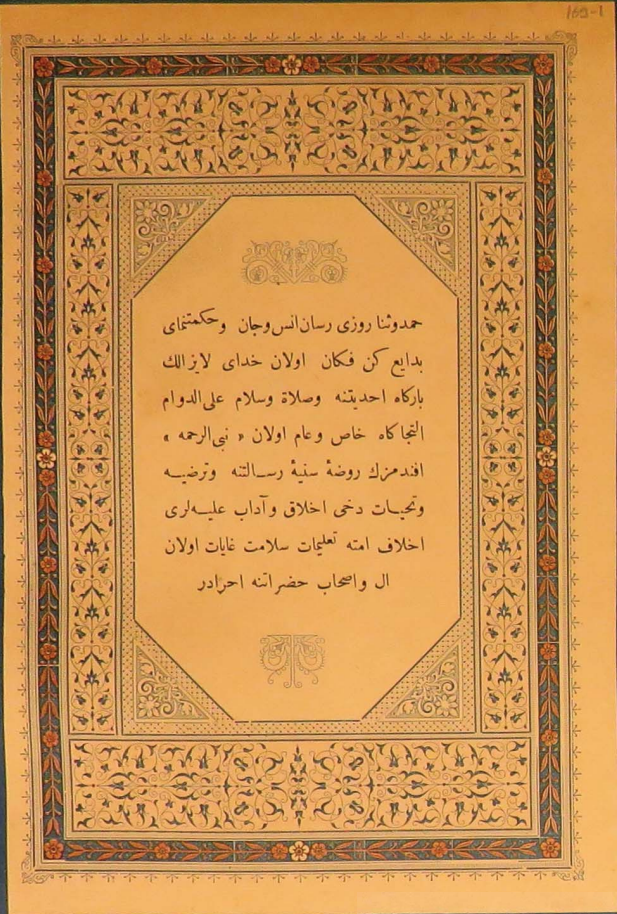 169-1
حمد وثنا روزی رسان انس وجان وحکمتنمای
بدایع کن فکان اولان خدای لایزالك
بارکاه احدیتنه وصلاة وسلام علی الدوام
التجاکاه خاص وعام اولان « نبی الرحمه »
افندمزك روضهٔ سنیهٔ رسـالتنه وترضیـه
وتحیـات دخی اخلاق وآداب علیـه‌لری
اخلاف امته تعلیمات سلامت غایات اولان
ال واصحاب حضراتنه احرادر